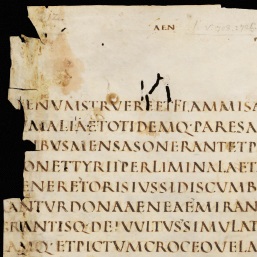 AEN
ENUMSTRUEREETFLAMMISA
MALIAETOTIDEMQ·PARESA
IBUSMENSASONERANTETP
ONETTYRIIPERLIMINALAET
ENERETORISIUSSIDISCUMB
ANTURDONAAENEAEMIRAN
RANTISQ·DEIVULTUSSIMULAT
AMQ·ETPICTUMCROCEOVELA